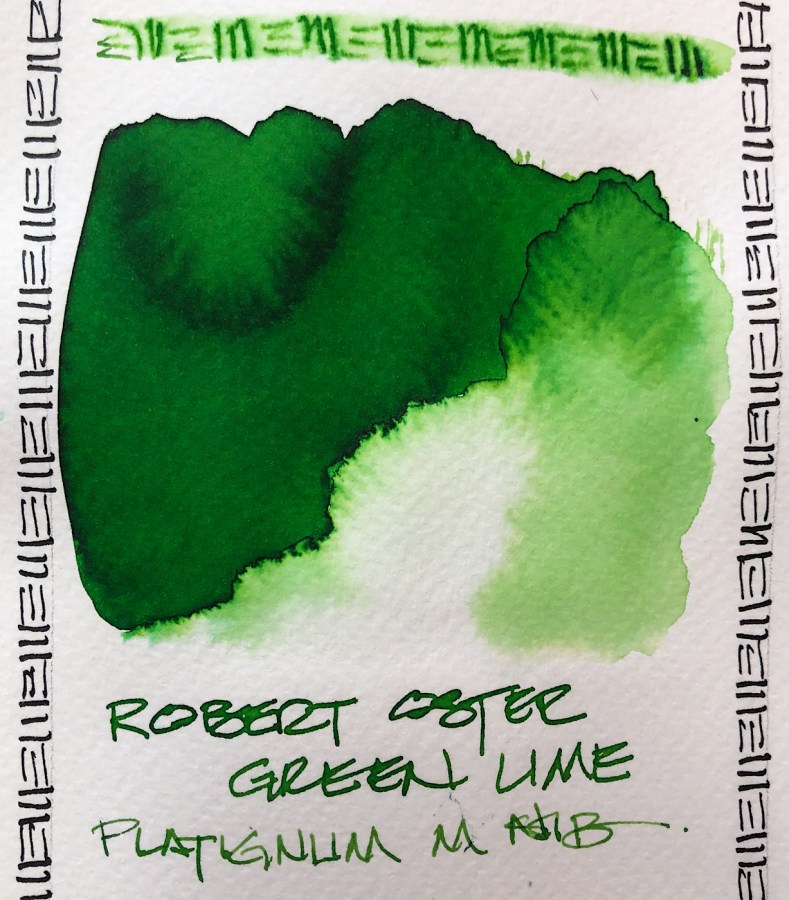 ROBERT OSTER
GREEN LIME
PLATIGNUM M NIB